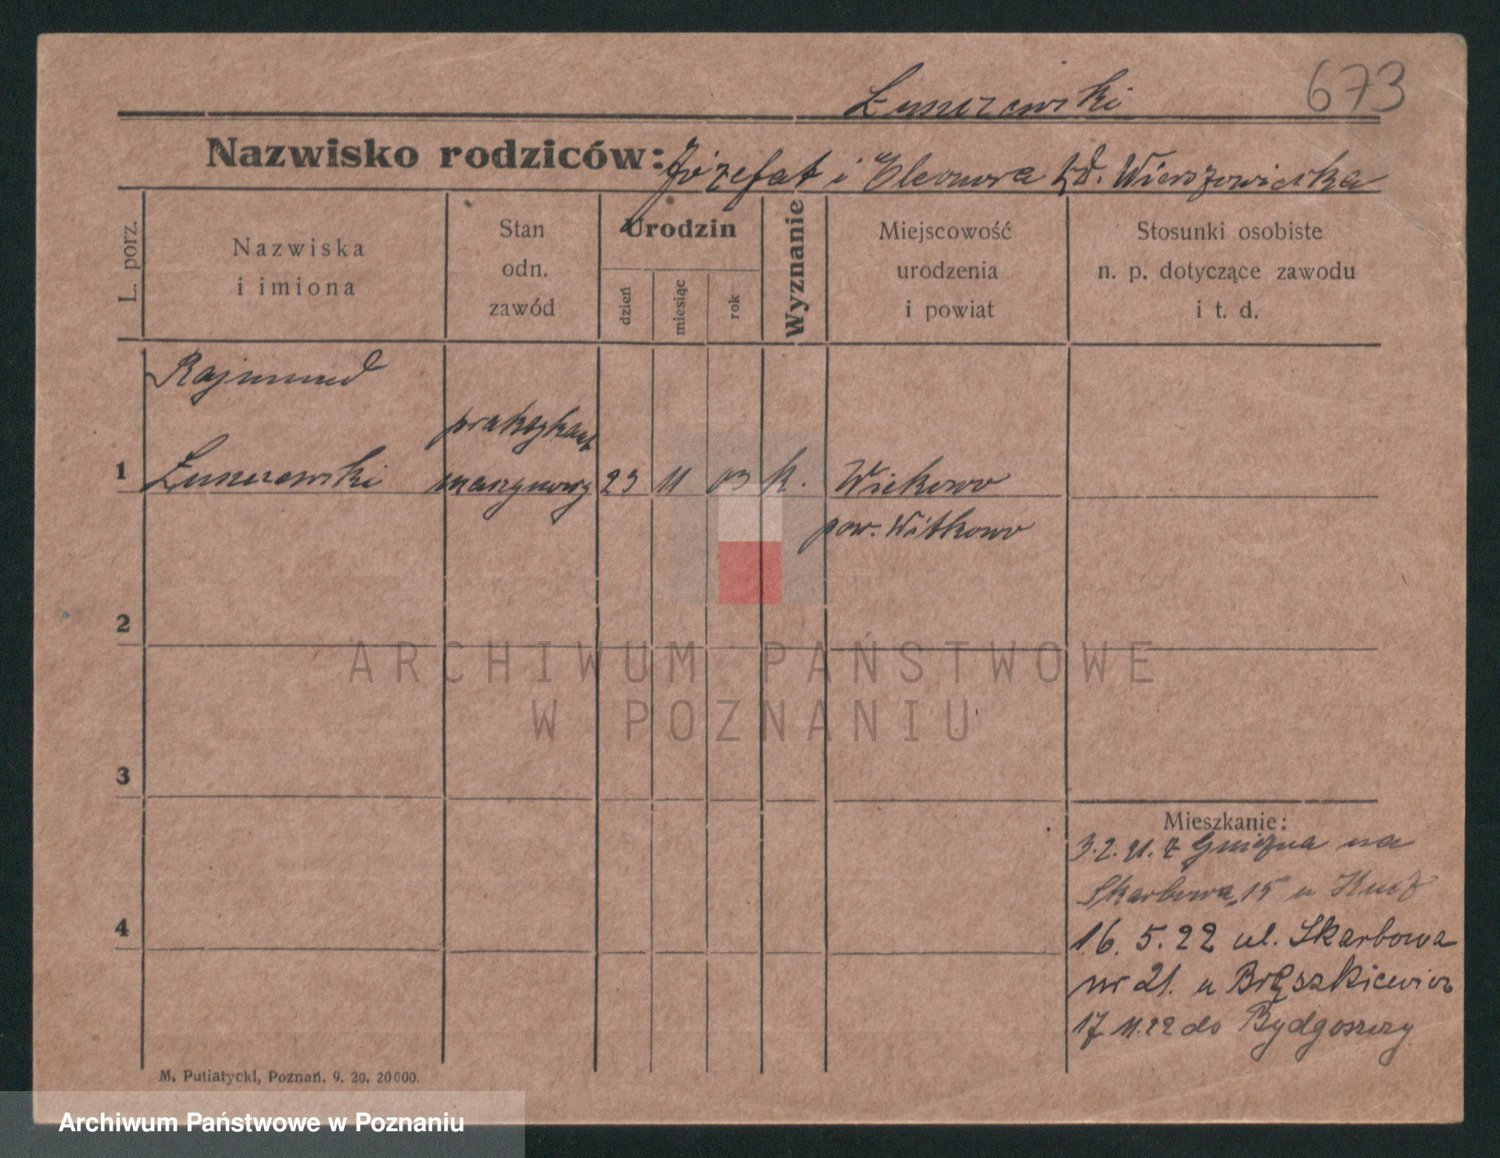 673
Łuszczewski
Nazwisko rodziców: Józefat i Eleonora zd. Wierszowicka
L. porz.
Nazwiska
i imiona
Stan
odn.
zawód
Urodzin
dzień
miesiąc
rok
Wyznanie
Miejscowość
urodzenia
i powiat
Stosunki osobiste
n. p. dotyczące zawodu
i t. d.
Rajmund
praktykant
1 Łuszczewski maszynowy 23 11 03 k. Wiekowo
pow. Witkowo
2
ARCHIWUM PAŃSTWOWE
W POZNANIU
3
Mieszkanie:
3.2.21. z Gniezna na
Skarbowa 15 u
4
16. 5. 22 ul. Skarbowa
nr 21. u
17 11.22 do Bydgoszczy
M. Putiatycki, Poznań. 9. 20. 20000.
Archiwum Państwowe w Poznaniu